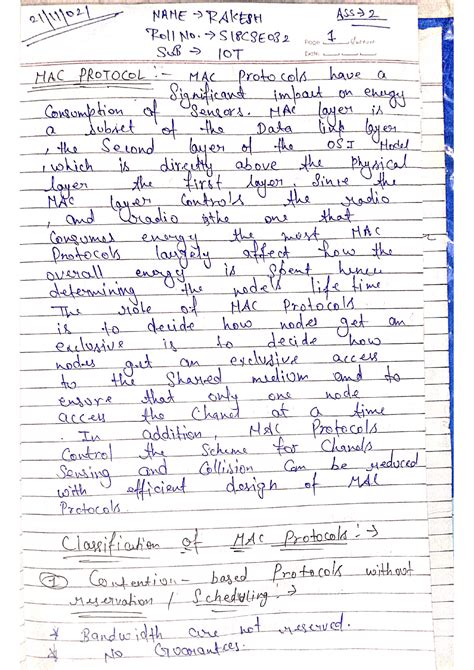 21/11/021
NAME → RAKESH
ASS → 2
Roll No. → S18CSE032
Page 1
SUB → IOT
Date:
MAC PROTOCOL :- MAC Protocols have a
Significant impact on energy
Consumption of Sensors. MAC layer is
a subset of the Data link layer
, the Second layer of the OSI Model
, which is directly above the Physical
layer the first layer. Since the
MAC layer Controls the radio
, and radio is the one that
Consumes energy the most MAC
Protocols largely affect how the
overall energy is Spent hence
determining the node's life time
The role of MAC Protocols
is to decide how nodes get an
exclusive is to decide how
nodes get an exclusive access
to the Shared medium and to
ensure that only one node
access the Chanel at a time
. In addition, MAC Protocols
Control the Scheme for Chanels
Sensing and Collision Can be reduced
with efficient design of MAC
Protocols.
Classification of MAC Protocols :→
① Contention - based Protocols without
reservation / Scheduling :→
* Bandwidth are not reserved.
* No Guarantees.